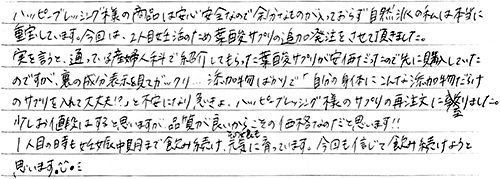 ハッピーブレッシング様の商品は安心安全なので余分なものが入っておらず自然派の私は本当に
重宝しています。今回は、2人目妊活のため葉酸サプリの追加発注をさせて頂きました。
実を言うと、通っている産婦人科で紹介してもらった葉酸サプリが安価だったので先に購入していた
のですが、裏の成分表示を見てガックリ…添加物ばかりで「自分の身体にこんな添加物だらけ
のサプリを入れて大丈夫!?」と不安になり、急きょ、ハッピーブレッシング様のサプリの再注文に至りました。
少しお値段はすると思いますが、品質が良いからこその価格なのだと思います!!
1人目の時も妊娠中期まで飲み続け、元気に育っています。今回も信じて飲み続けようと
思います。